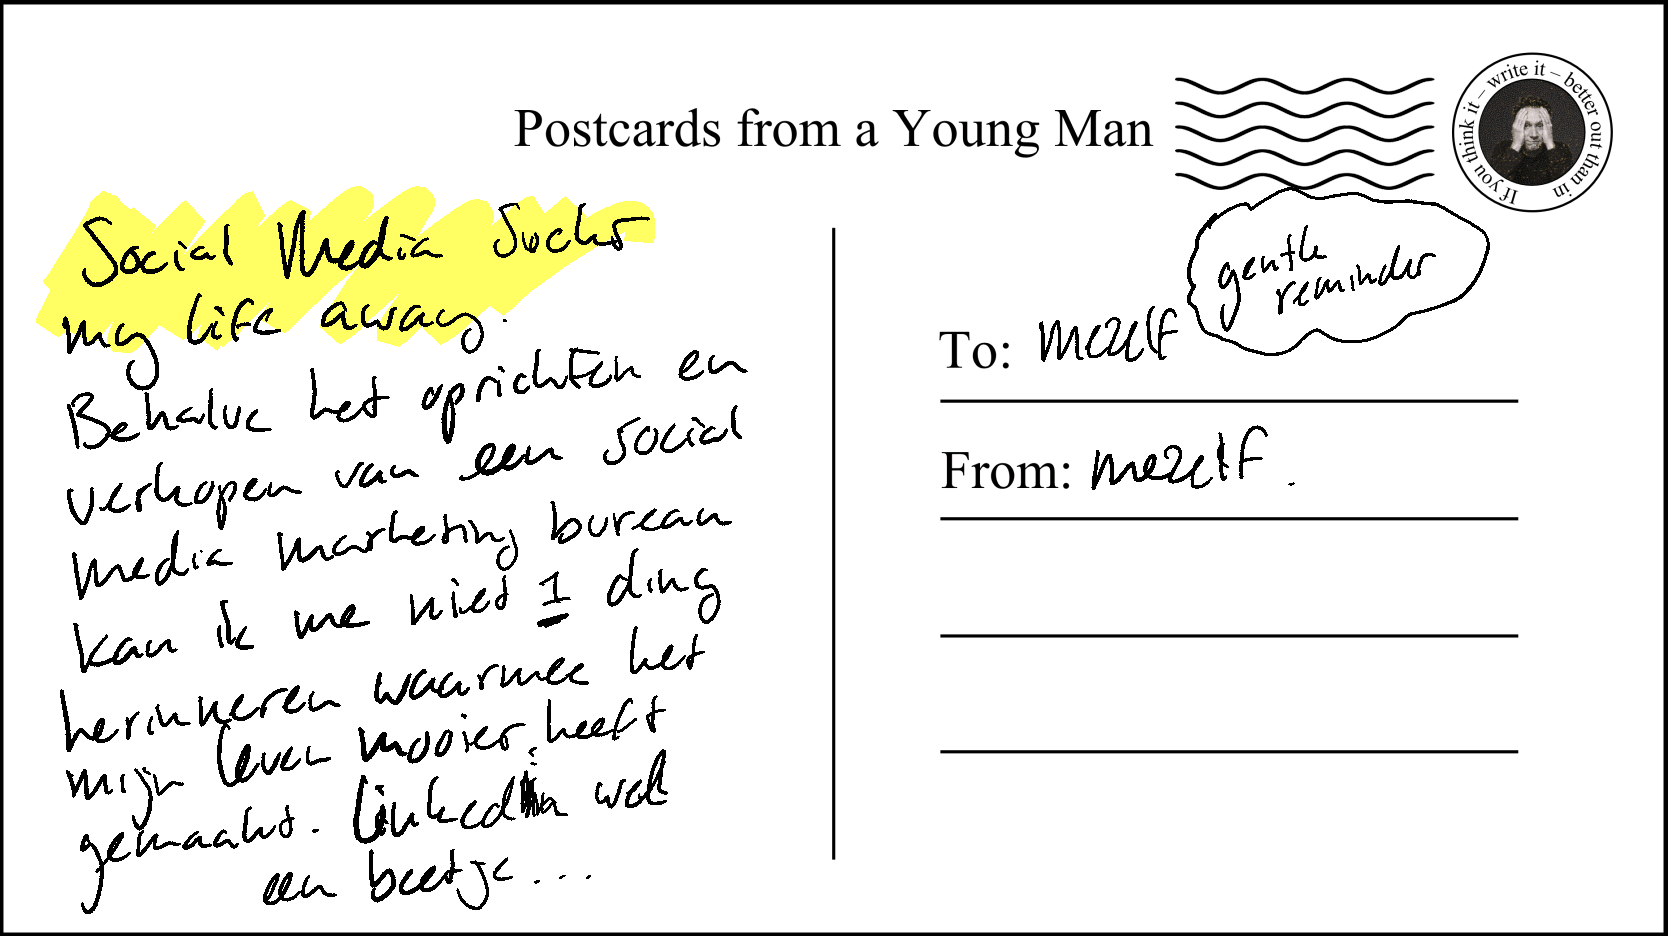 Postcards from a Young Man
If you think it – write it – better out than in
Social Media Sucks
my life away.
Behalve het oprichten en
verkopen van een social
media marketing bureau
kan ik me niet 1 ding
herinneren waarmee het
mijn leven mooier heeft
gemaakt. LinkedIn wel
een beetje...
gentle
reminder
To: mezelf
From: mezelf.